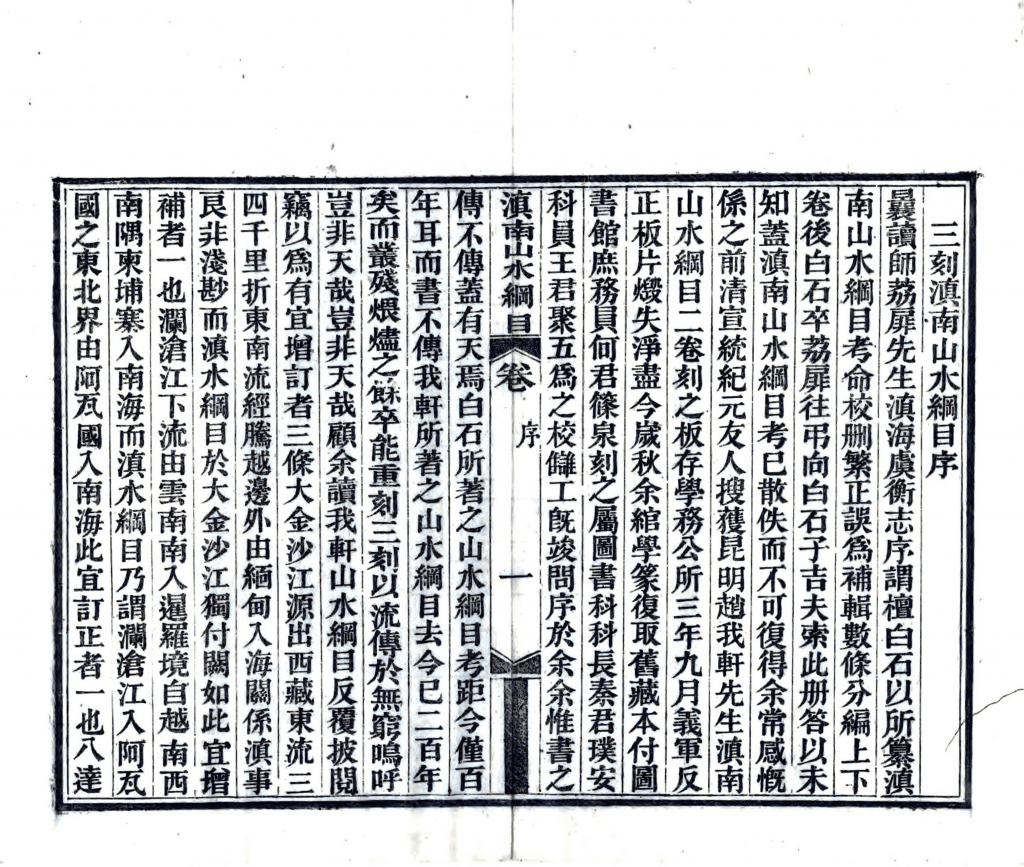 三刻滇南山水綱目序
曩讀師荔扉先生滇海虞衡志序謂檀白石以所纂滇
南山水綱目考命校刪繁正誤爲補輯數條分編上下
卷後白石卒荔扉往弔向白石子吉夫索此册答以未
知蓋滇南山水綱目考已散佚而不可復得余常感慨
係之前清宣統紀元友人搜獲昆明趙我軒先生滇南
山水綱目二卷刻之板存學務公所三年九月義軍反
正板片燬失淨盡今歲秋余綰學篆復取舊藏本付圖
書館庶務員何君篠泉刻之屬圖書科科長秦君璞安
科員王君聚五爲之校讎工旣竣問序於余余惟書之
滇南山水綱目 卷 序 一
傳不傳蓋有天焉白石所著之山水綱目考距今僅百
年耳而書不傳我軒所著之山水綱目去今已二百年
矣而叢殘煨燼之餘卒能重刻三刻以流傳於無窮嗚呼
豈非天哉豈非天哉顧余讀我軒山水綱目反覆披閱
竊以爲有宜增訂者三條大金沙江源出西藏東流三
四千里折東南流經騰越邊外由緬甸入海關係滇事
艮非淺尠而滇水綱目於大金沙江獨付闕如此宜增
補者一也瀾滄江下流由雲南南入暹羅境自越南西
南隅柬埔寨入南海而滇水綱目乃謂瀾滄江入阿瓦
國之東北界由阿瓦國入南海此宜訂正者一也八達